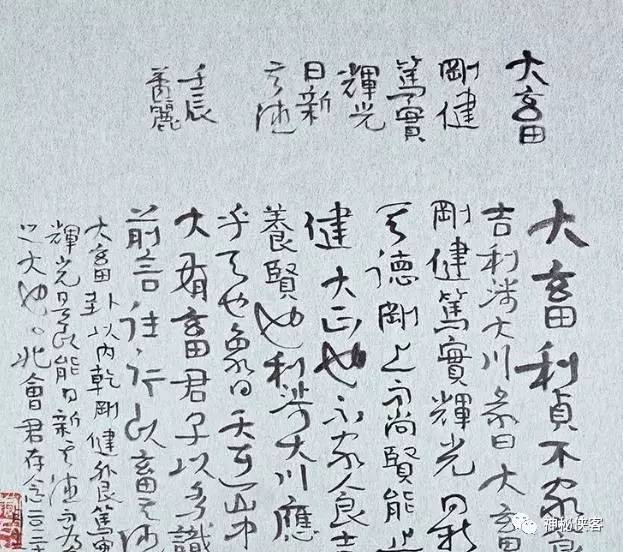 大畜
剛健
篤實
輝光
日新
其德
壬辰
大畜利貞不家食
吉利涉大川彖曰大畜
剛健篤實輝光日新
其德剛上而尚賢能止
健大正也不家食吉
養賢也利涉大川應
乎天也象曰天在山中
大畜君子以多識
前言往行以畜其德
大畜卦以內乾剛健外艮篤實
輝光是艮能日新其德而為
之大也
神秘侠客